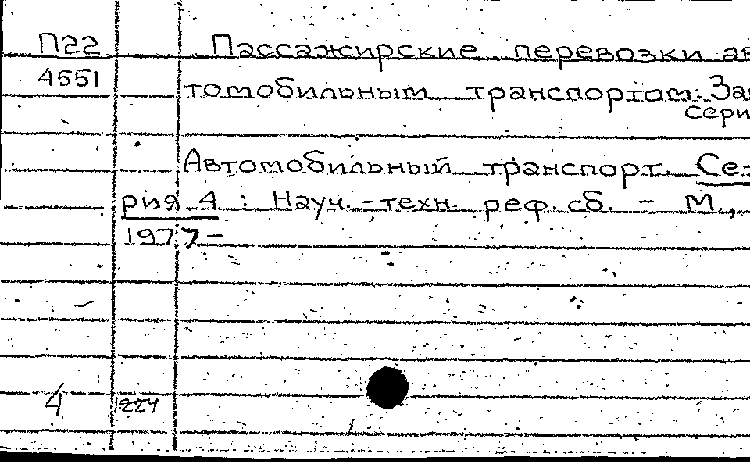 П22 Пассажирские перевозки ав
4551 томобильным транспортом. Заг
сери
Автомобильный транспорт. Се-
рия 4 : Науч.-техн. реф. сб. - М.,
1977-
4 224